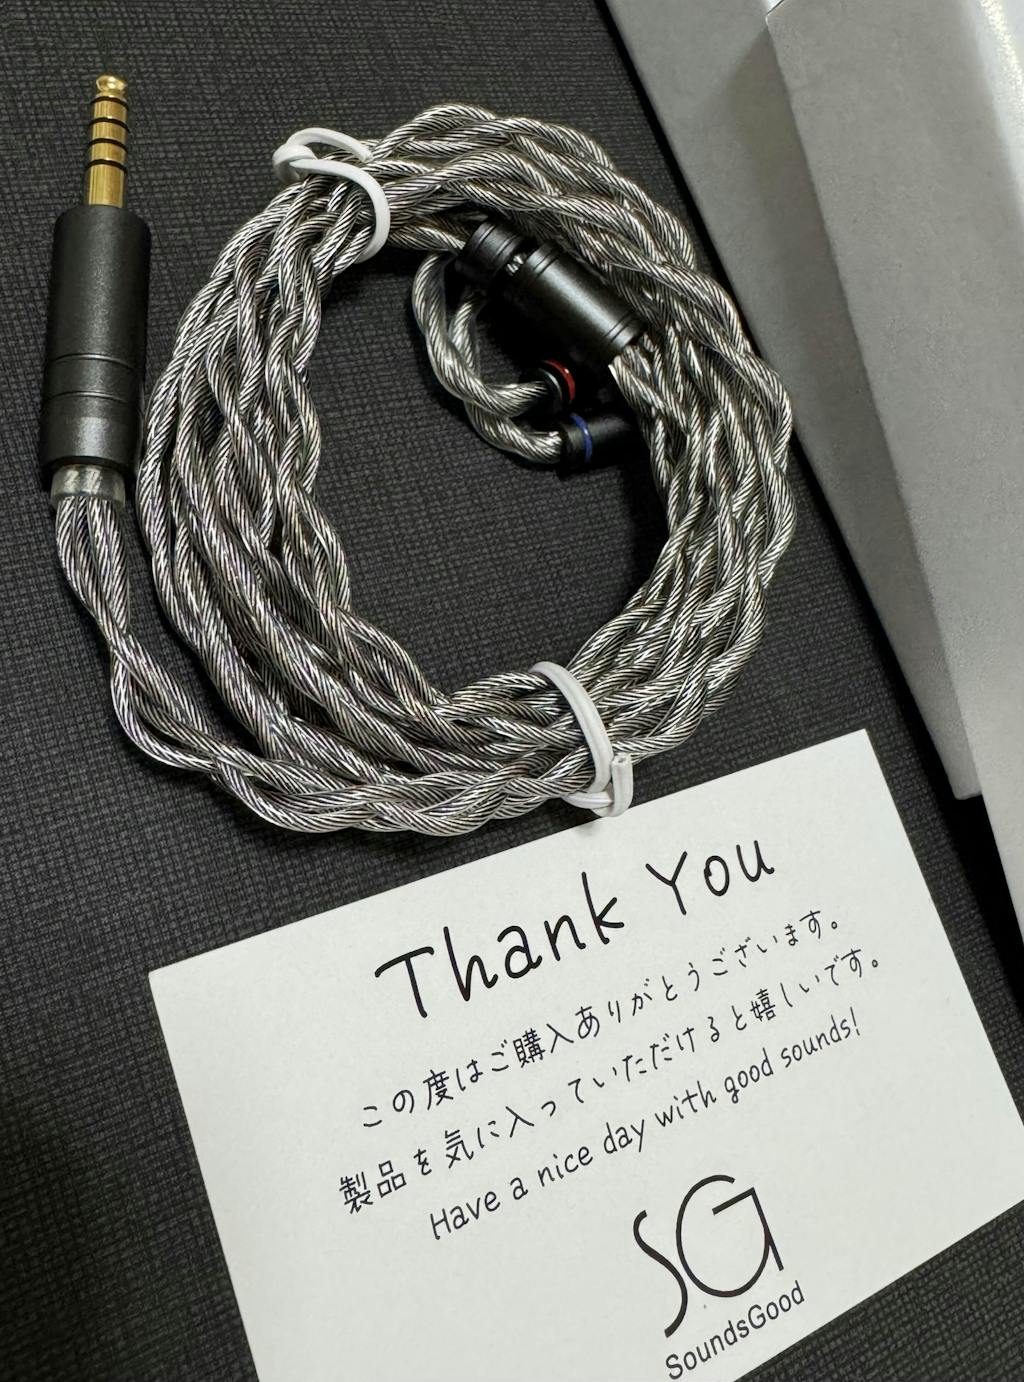 Thank You
この度はご購入ありがとうございます。
製品を気に入っていただけると嬉しいです。
Have a nice day with good sounds!
SG
SoundsGood